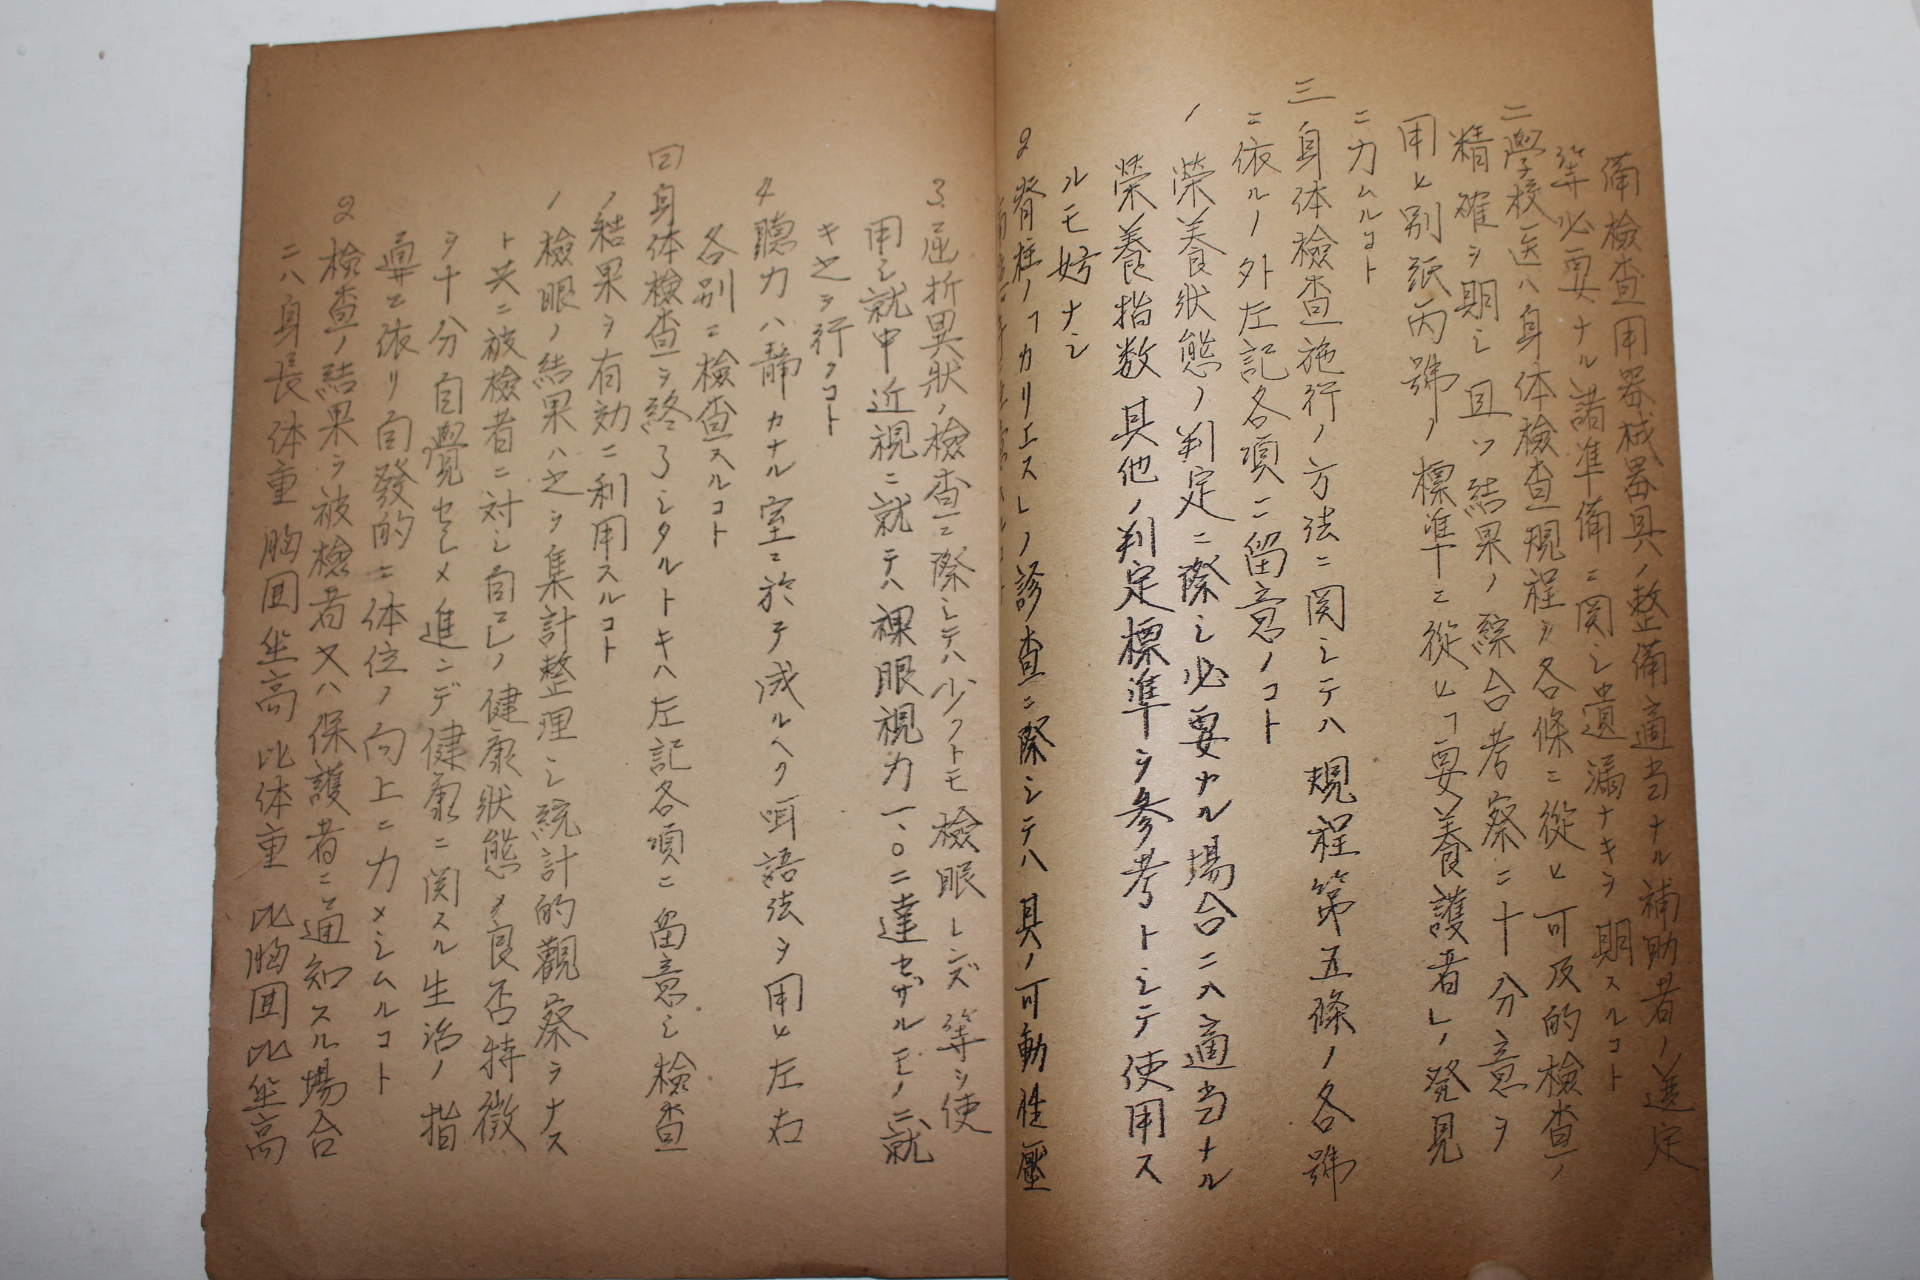 備檢査用器械器具ノ整備適当ナル補助者ノ選定
等必要ナル諸準備ニ関シ遺漏ナキヲ期スルコト
二學校医ハ身体檢査規程ヲ各條ニ從ヒ可及的檢査ノ
精確ヲ期シ且ツ結果ノ綜合考察ニ十分意ヲ
用ヒ別紙丙號ノ標準ニ從ヒ「要養護者」ノ発見
ニ力ムルコト
三身体檢査施行ノ方法ニ関シテハ規程第五條ノ各號
ニ依ルノ外左記各項ニ留意ノコト
1 榮養狀態ノ判定ニ際シ必要ナル場合ニハ適当ナル
榮養指数其他ノ判定標準ヲ参考トシテ使用ス
ルモ妨ナシ
2 脊柱ノ「カリエス」ノ診査ニ際シテハ其ノ可動性壓
3. 屈折異狀ノ檢査ニ際シテハ少クトモ檢眼レンズ等ヲ使
用シ就中近視ニ就テハ裸眼視力一、〇ニ達セザルモノニ就
キ之ヲ行フコト
4 聽力ハ静カナル室ニ於テ成ルヘク呬語法ヲ用ヒ左右
各別ニ檢査スルコト
四身体檢査ヲ終了シタルトキハ左記各項ニ留意シ檢査
ノ結果ヲ有効ニ利用スルコト
1 檢眼ノ結果ハ之ヲ集計整理シ統計的觀察ヲナス
ト共ニ被檢者ニ対シ自己ノ健康狀態ノ良否特徴
ヲ十分自覺セシメ進ンデ健康ニ関スル生活ノ指
導ニ依リ自發的ニ体位ノ向上ニ力メシムルコト
2 檢査ノ結果ヲ被檢者又ハ保護者ニ通知スル場合
ニハ身長体重胸囲坐高比体重比胸囲比坐高